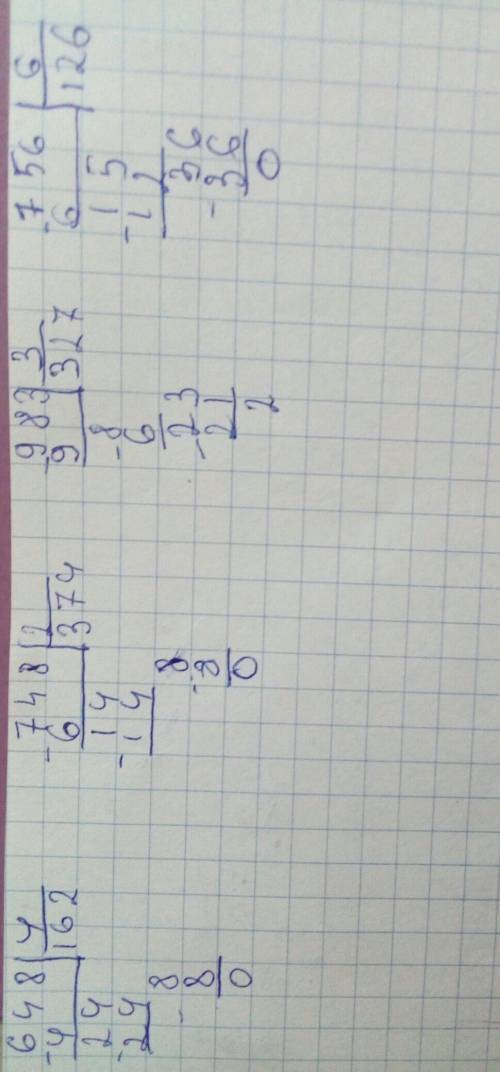 648 4
-4 162
24
-24
8
-8
0
-748 2
6 374
14
-14
8
-8
0
-983 3
9 327
-8
6
-23
21
2
-756 6
6 126
15
-12
36
-36
0